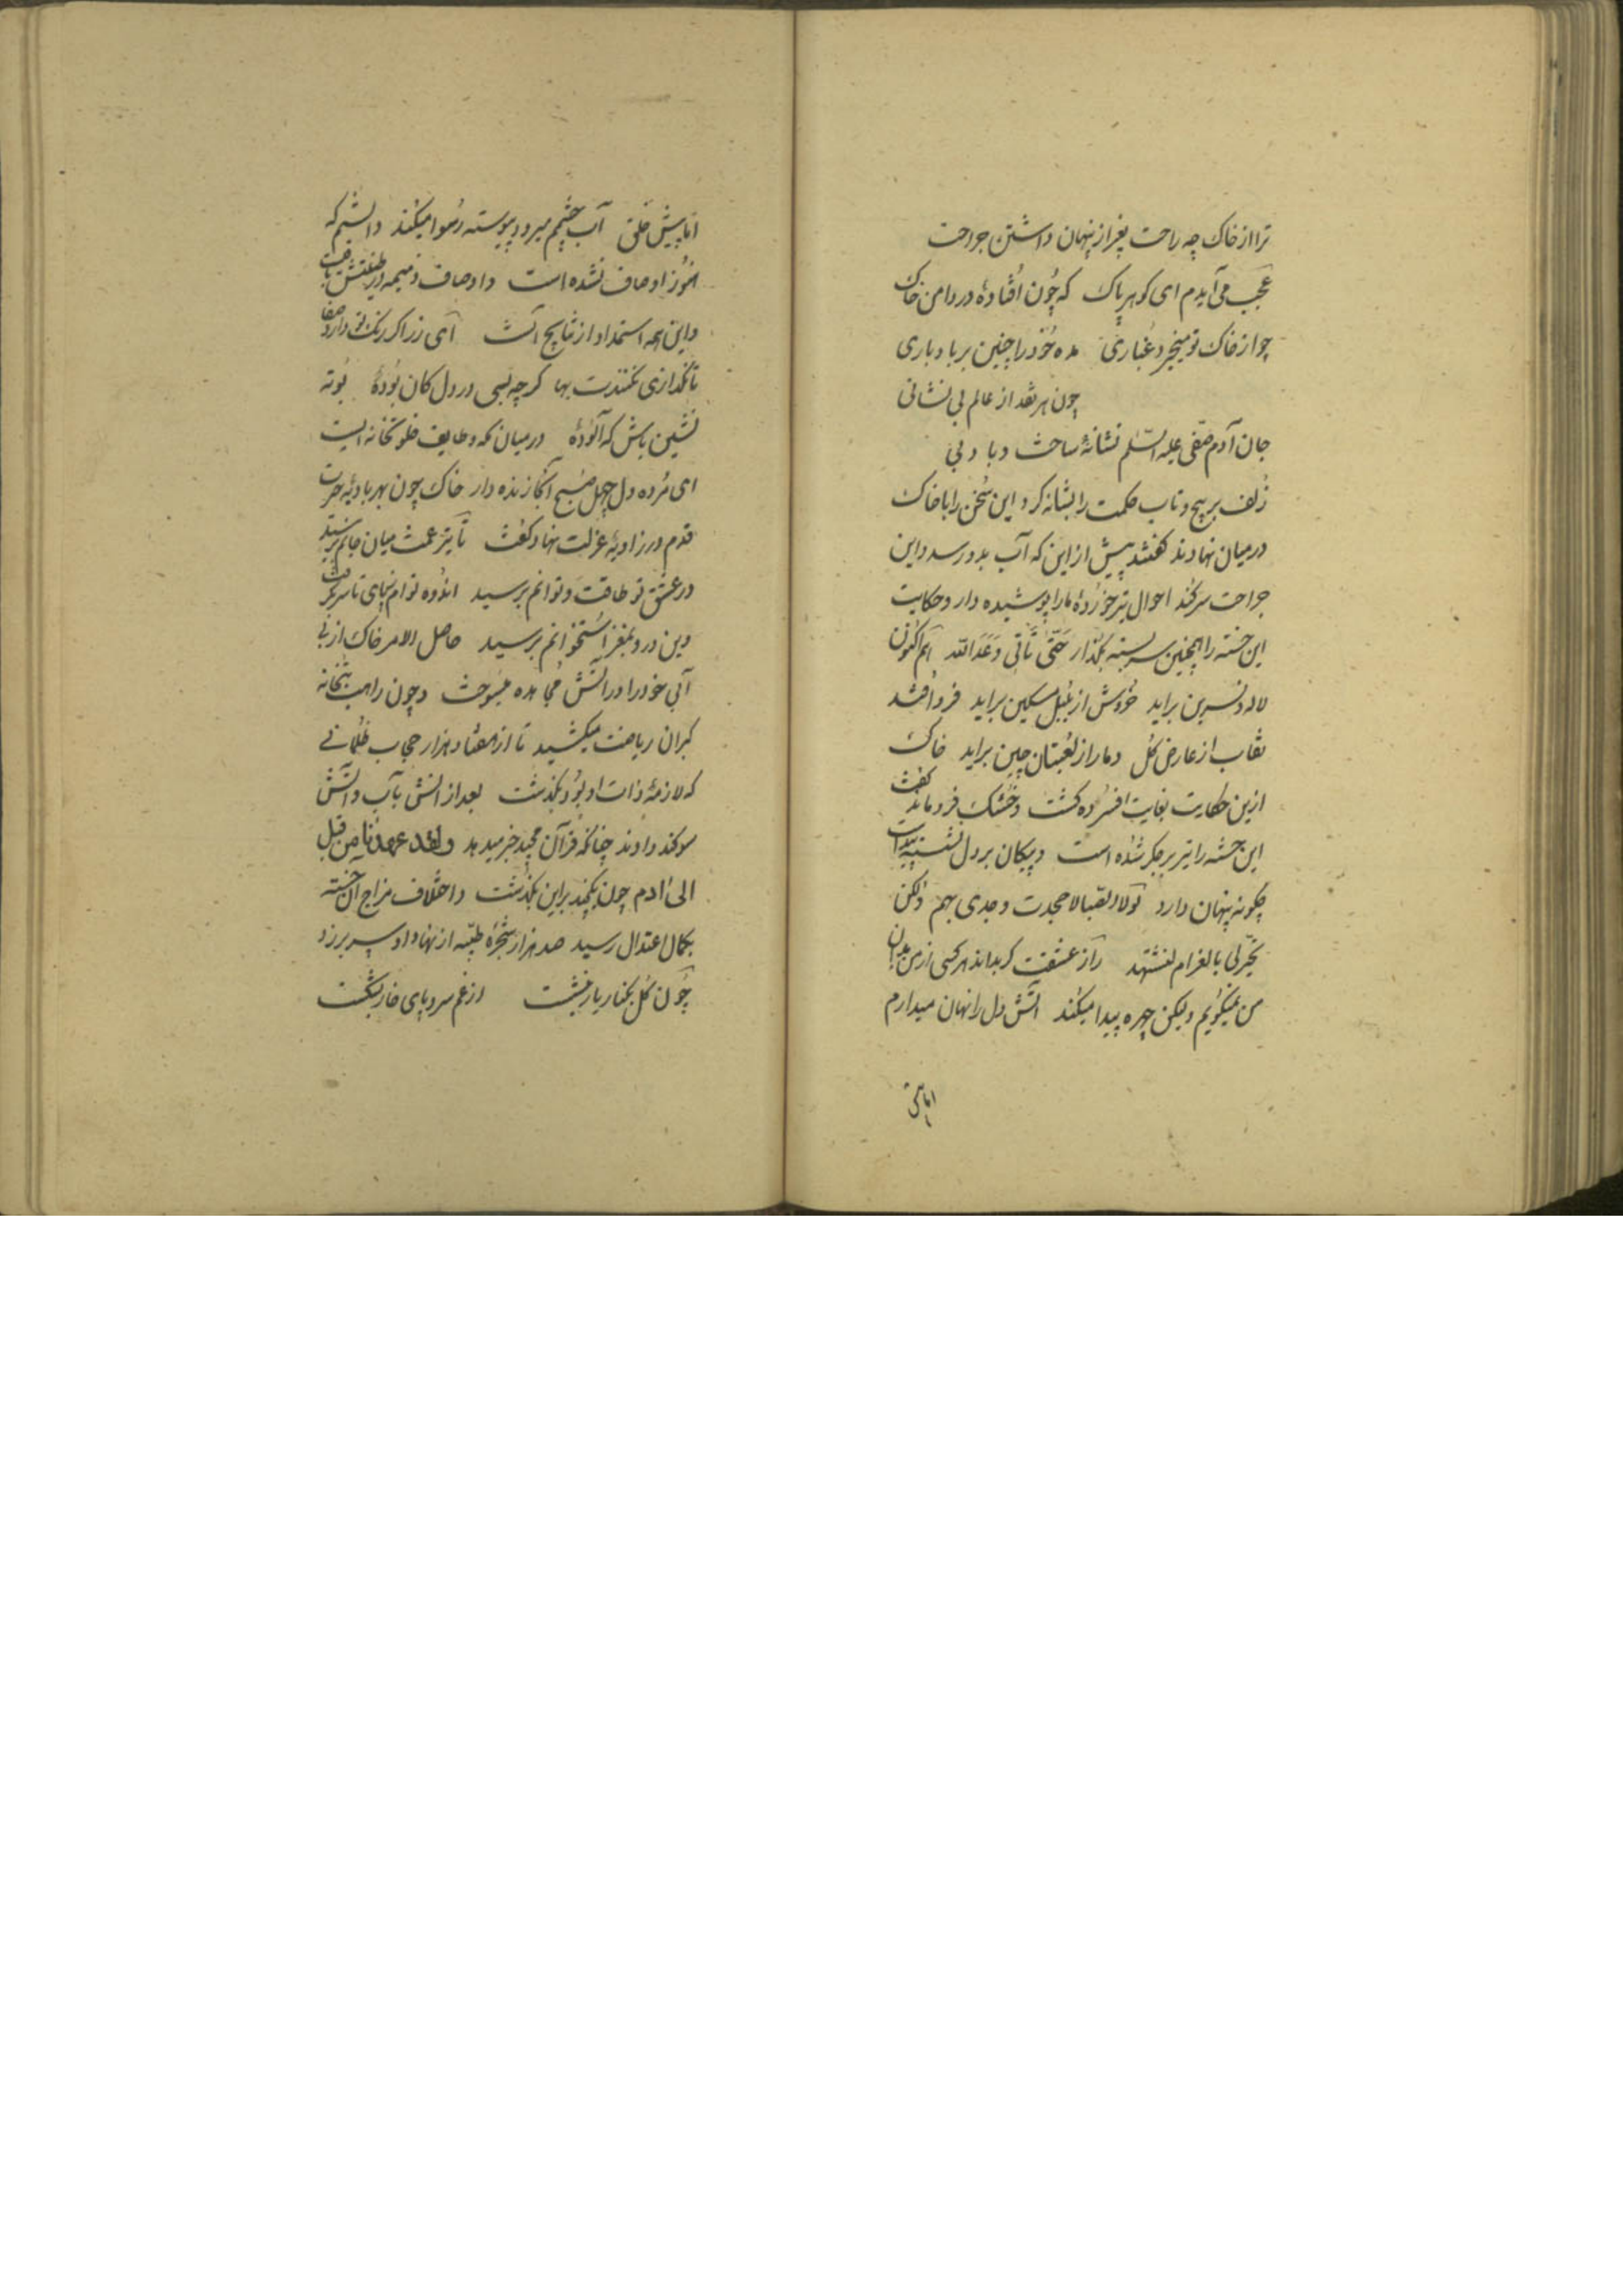 ترا از خاک چه راحت بغیر از پنهان داشتن جراحت
عجب می آیدم ای کوهر پاک که چون افتادهٔ در دامن خاک
چو از خاک تو میخیزد غباری مده خود را چنین بر باد باری
چون هر نقد از عالم بی نشانی
جان آدم صفی علیه السلم نشانهٔ ساخت و باد بی
زلف پر پیچ و تاب حکمت را بشانه کرد این سخن را با خاک
در میان نهادند گفتند پیش از این که آب بدو رسد و این
جراحت سر کند احوال تیر خوردهٔ ما را پوشیده دار و حکایت
این خسته را همچنین سر بسته بگذار حتی تأتی وعد الله هم اکنون
لاله و نسرین براید خروش از بلبل مسکین براید فرو افتد
نقاب از عارض کل دمار از لعبتان چین براید خاک
ازین حکایت بغایت افسرده کشت و خشک فرو ماند گفت
این خسته را تیر بر جکر شده است و پیکان بر دل نشسته
چکونه پنهان دارد لولا الصبا لاصحبت وجدی بهم ولکن
تحیرلی بالغرام لتشتهد راز عشقت کر بداند هر کسی از من بدان
من نمیکویم ولیکن چهره پیدا میکند آتش دل را نهان میدارم
اما پیش
اما پیش خلق آب چشمم میرود پیوسته رسوا میکند دانستم که
هنوز اوصاف نشده است و اوصاف ذمیمه در طینتش باقیست
و این همه استمداد از نتایج آنست ای زر اکر رنک تو دارد صفا
تا نکدازی نکنندت بها کر چه بسی در دل کان بودهٔ بوته
نشین باش که آلودهٔ در میان مکه و طایف خلوتخانه ایست
ای مرده دل چهل صبح آنجا زنده دار خاک چون بهر بادیهٔ حیرت
قدم در زاویهٔ عزلت نهاد و گفت تا تیر غمت میان جانم برسید
در عشق تو طاقت و توانم برسید اندوه توام ز پای تا سر بگرفت
وین درد بمغز استخوانم برسید حاصل الامر خاک از بی
آبی خود را در آتش مجاهده میسوخت و چون راهب بتخانه
کبران ریاضت میکشید تا از هفتاد هزار حجاب ظلمانی
که لازمهٔ ذات او بود بگذشت بعد از آنش بآب و آتش
سوکند دادند چنانکه قرآن مجید خبر میدهد ولقد عهدنا من قبل
الی آدم چون یکچند براین بگذشت و اختلاف مزاج آن خسته
بکمال اعتدال رسید صد هزار شجرهٔ طیبه از نهاد او سر بر زد
چون کل بکنار یار بنشست از غم سر و پای خار بشکست